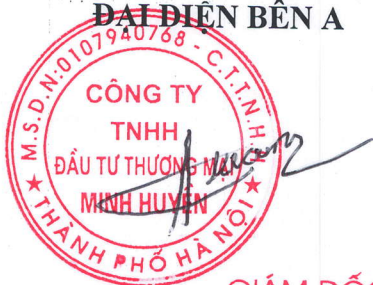 ĐẠI DIỆN BÊN A
M.S.D.N:0107940768 - C.T.T.N.H.H
CÔNG TY
TNHH
ĐẦU TƯ THƯƠNG MẠI
MINH HUYỀN
THÀNH PHỐ HÀ NỘI
GIÁM ĐỐC